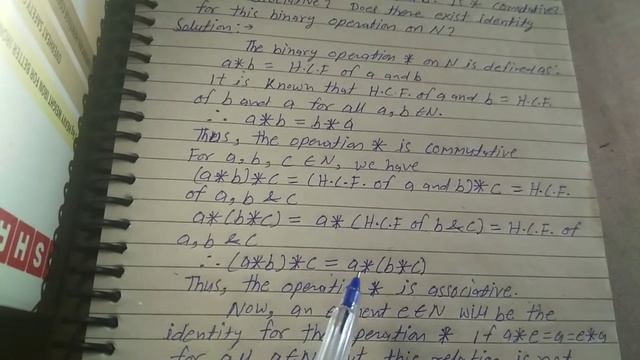 Is * commutative?
associative? Does there exist identity
for this binary operation on N?
Solution:→
The binary operation * on N is defined as:
a*b = H.C.F of a and b
It is known that H.C.F. of a and b = H.C.F.
of b and a for all a, b ∈ N.
∴ a*b = b*a
Thus, the operation * is commutative
For a, b, c ∈ N, we have
(a*b)*c = (H.C.F. of a and b)*c = H.C.F.
of a, b & c
a*(b*c) = a*(H.C.F of b & c) = H.C.F. of
a, b & c
∴ (a*b)*c = a*(b*c)
Thus, the operation * is associative.
Now, an element e ∈ N will be the
identity for the operation * if a*e=a=e*a
for all a ∈ N this relation is not
HHS